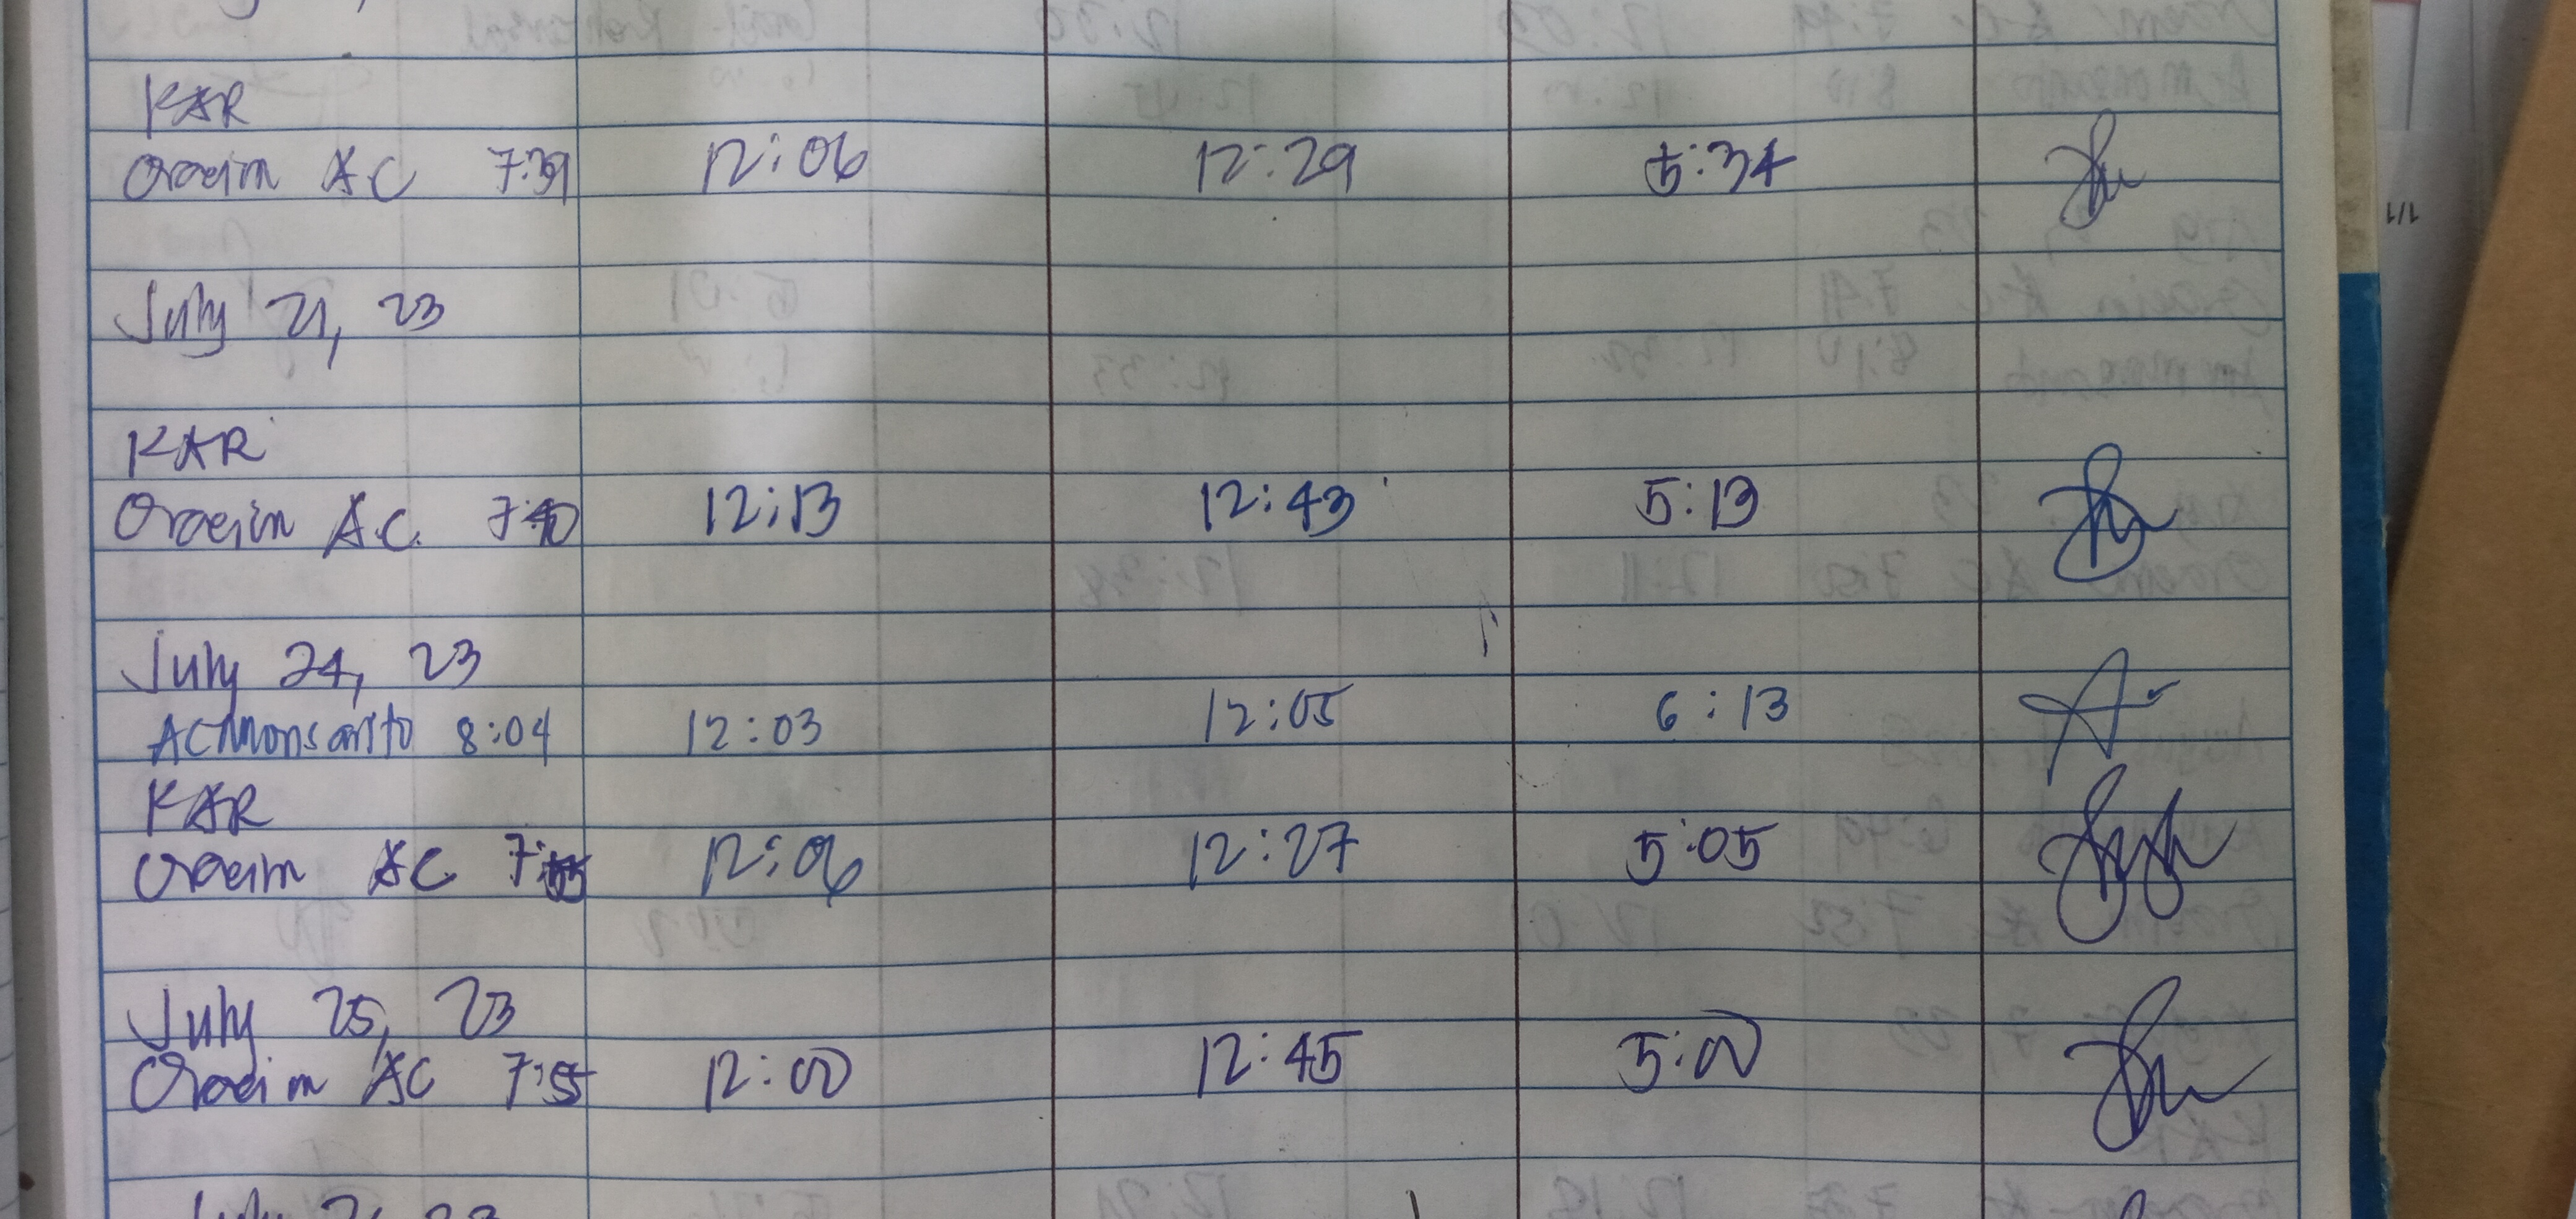 KAR
Oracim AC 7:39 12:06 12:29 5:34
July 21, 23
KAR
Oracim A.C. 7:40 12:13 12:43 5:13
July 24, 23
ACMonsanto 8:04 12:03 12:05 6:13
KAR
Oracim AC 12:06 12:27 5:05
July 25, 23
Oracim AC 7:55 12:00 12:45 5:00
1/1